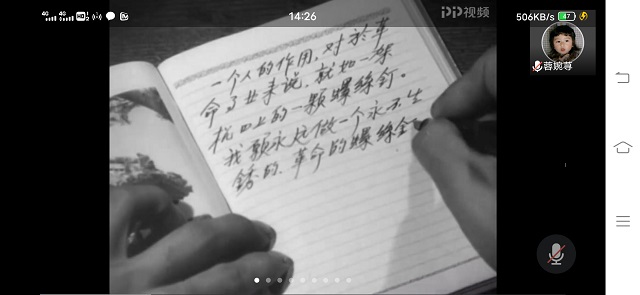 4G 4G HD 14:26 506KB/s 47
PP视频
蓉婉荨
一个人的作用，对於革
命事业来说，就如一架
机器上的一颗螺絲钉。
我願永远做一个永不生
銹的、革命的螺絲